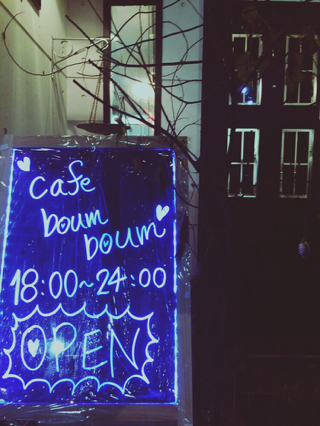 Cafe
boum
boum
18:00~24:00
OPEN